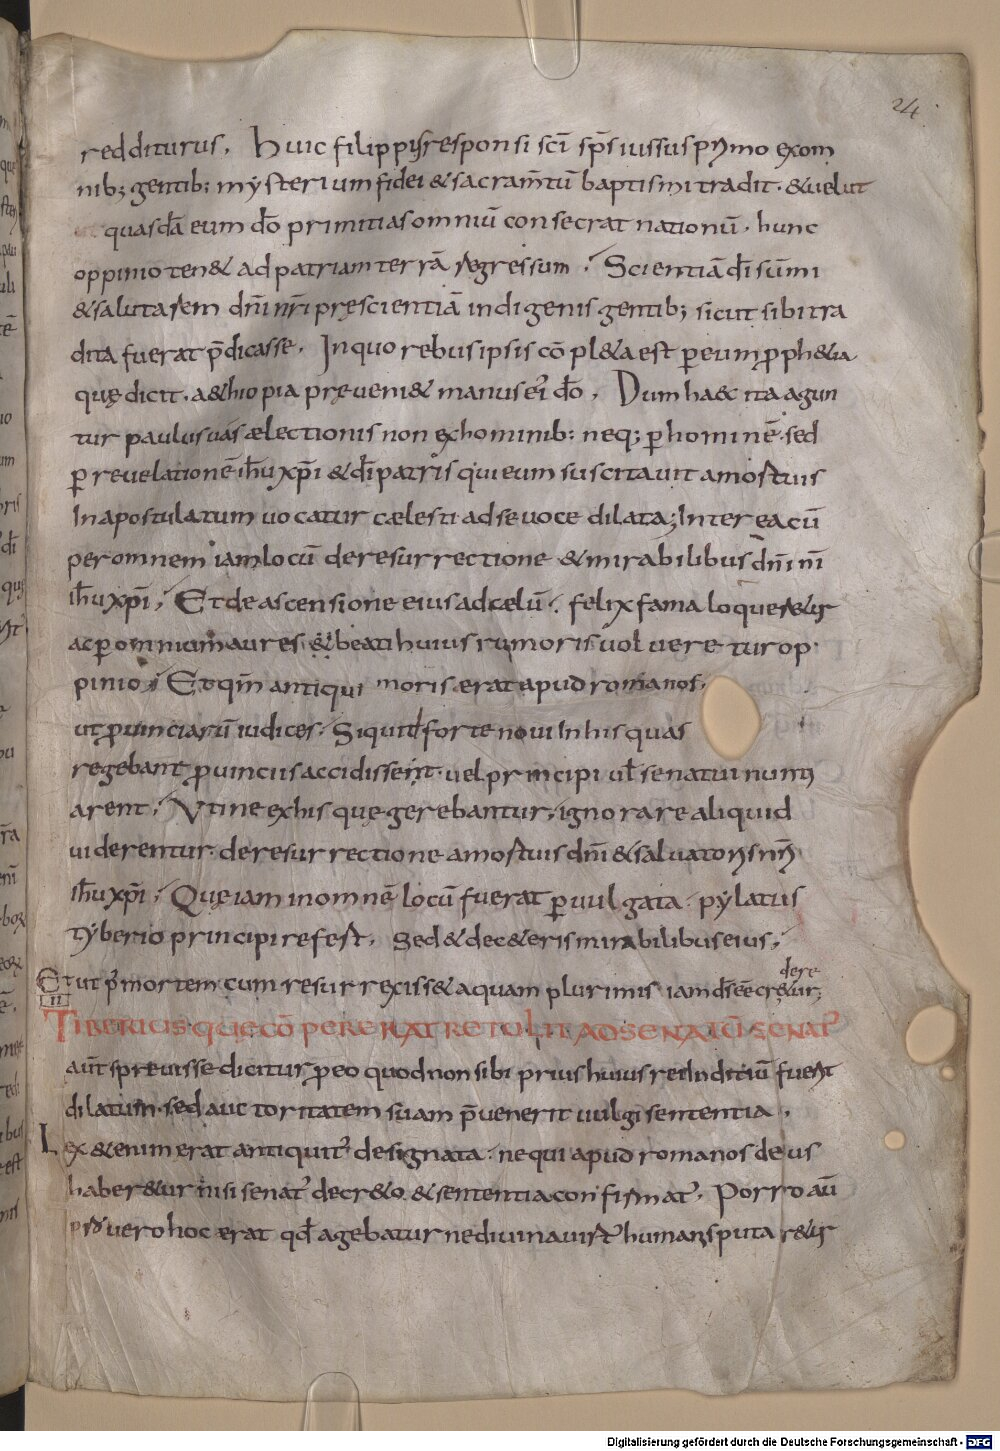 24
redditurus. Huic filippus responsi sci sps iussus primo exom
nib; gentib; mysterium fidei & sacram̄tū baptismi tradit. & uelut
quasdā eum dō primitias omniū consecrat nationū. hunc
oppinio ten& ad patriam terrā regressum. Scientiā dī sūmi
& salutarem dn̄i nr̄i prescientiā indigenis gentib; sicut sibi tra
dita fuerat p̄dicasse. In quo rebus ipsis cōpl&a est p eum p ph&ia
quę dicit. a&hiopia pręueni& manus ei' dō. Dum haec ita agun
tur paulus uas aelectionis non ex hominib: neq; p hominē. sed
p reuelationē ih̄u xp̄i & dī patris qui eum suscitauit a mortuis
In apostulatum uocatur caelesti ad se uoce dilata; Interea cū
per omnem iam locū de resurrectione & mirabilibus dn̄i nr̄i
ih̄u xp̄i; Et de ascensione eius ad celū. felix fama loquer&ur
ac p omnium aures & beati huius rumoris uolueretur op
pinio; Et qm̄ antiqui moris erat apud romanos.
ut puinciarū iudices. Siquid forte noui In his quas
regebant puinciis accidissent. uel principi ul senatui nunti
arent; Ut ne ex his quę gerebantur, ignorare aliquid
uiderentur. de resurrectione a mortuis dn̄i & saluatoris nr̄i
ih̄u xp̄i; Quę iam in omnē locū fuerat puulgata. pylatus
tyberio principi refert. Sed & de c&eris mirabilibus eius;
Et ut p' mortem cum resurrexiss& a quam plurimis iam dś eē cr&ur; dere
II
TIBERIUS. QUĘ CŌPERERAT RETULIT AD SENATŪ. SENAT'
aūt spreuisse dicitur p eo quod non sibi prius huius rei Inditiū fuerit
dilatum. sed auctoritatem suam p̄uenerit uulgi sententia.
Lex &enim erat antiquit' designata. ne qui apud romanos deus
haber&ur nisi senat' decr&o. & sententia confirmat'. Porro aū
uero hoc erat qd agebatur ne diuina uirt' humanis putar&ur
Digitalisierung gefördert durch die Deutsche Forschungsgemeinschaft - DFG